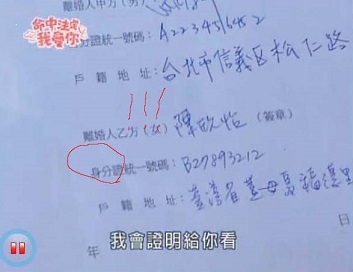 離婚人甲方（男）
命中注定
我愛你
身分證統一號碼：A223456452
戶籍地址：台北市信義区松仁路
離婚人乙方（女）陳欣怡（簽章）
身分證統一號碼：B27893212
戶籍地址：臺灣省
我會證明給你看
年 日